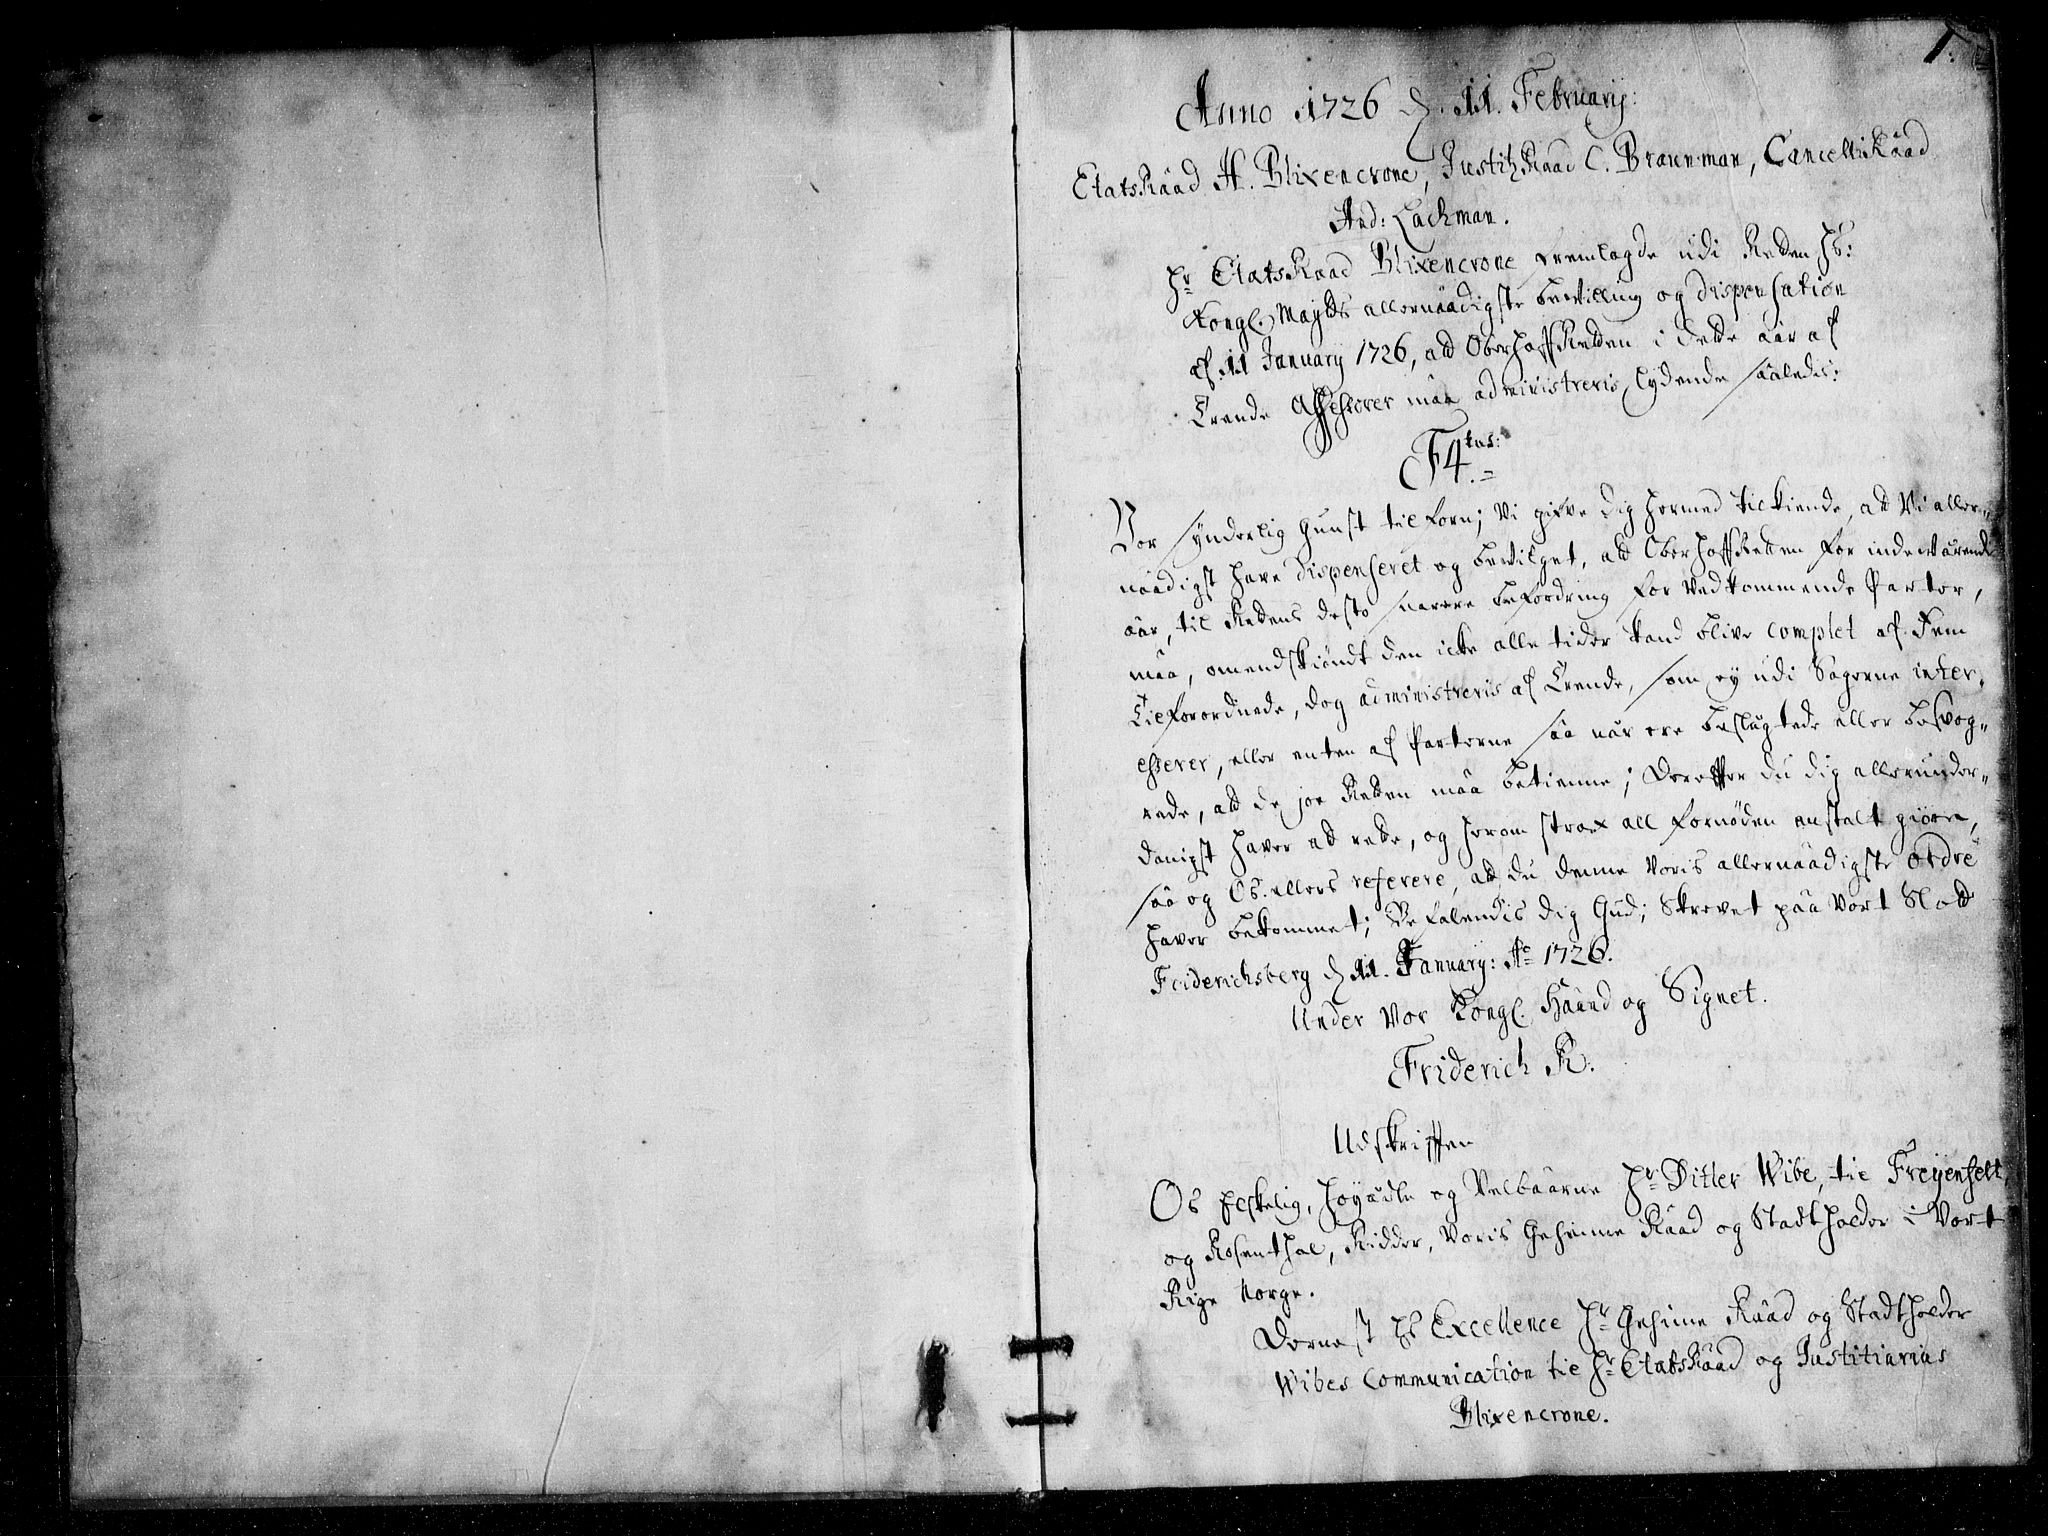 1.
Anno 1726 d. 11. February:
EtatsRaad H. Blixencrone, JustitzRaad C. Braunman, CancelliRaad
And: Lachman.
Hr EtatsRaad Blixencrone fremlagde udi Retten Hs:
Kongl. Maytts allernaadigste bevilling og dispensation
af 11 January 1726, att OberhoffRetten i dette aar af
Trende Assessorer maa administreris, lydende saaledis:
F4tus:
Vor synderlig Gunst tilforn; Vi give dig hermed tilkiende, att Vi aller-
naadigst have dispenseret og bevilget, att OberhoffRetten for indeværende
aar, til Rettens desto snarere befordring for Vedkommende Parter,
maa, omendskiøndt den icke alle tider kand blive complet af Fem
Tilforordnede, dog administreris af Trende, som ey udi Sagerne inter-
esserer, eller enten af Parterne saa nær ere beslugtede eller besvog-
rede, att de jo Retten maa betienne; Derefter du dig allerunder-
danigst haver at rette, og herom strax all fornøden anstalt giøre,
saa og Os ellers referere, att du denne Voris allernaadigste ordre
haver bekommet; Befalendis dig Gud; Skrevet paa Vort Slott
Friderichsberg d 11. January: Ao 1726.
Under Vor Kongl. Haand og Signet.
Friderich R.
Udskriften
Os Elskelig, Høyædle og Velbaarne Hr Ditlev Wibe, til Freyenfelt
og Rosenthal, Ridder, Voris Geheime Raad og Stadtholder i Vort
Rige Norge.
Dernest Hs Excellence Hr Geheime Raad og Stadtholder
Wibes Communication til Hr EtatsRaad og Justitiarius
Blixencrone.